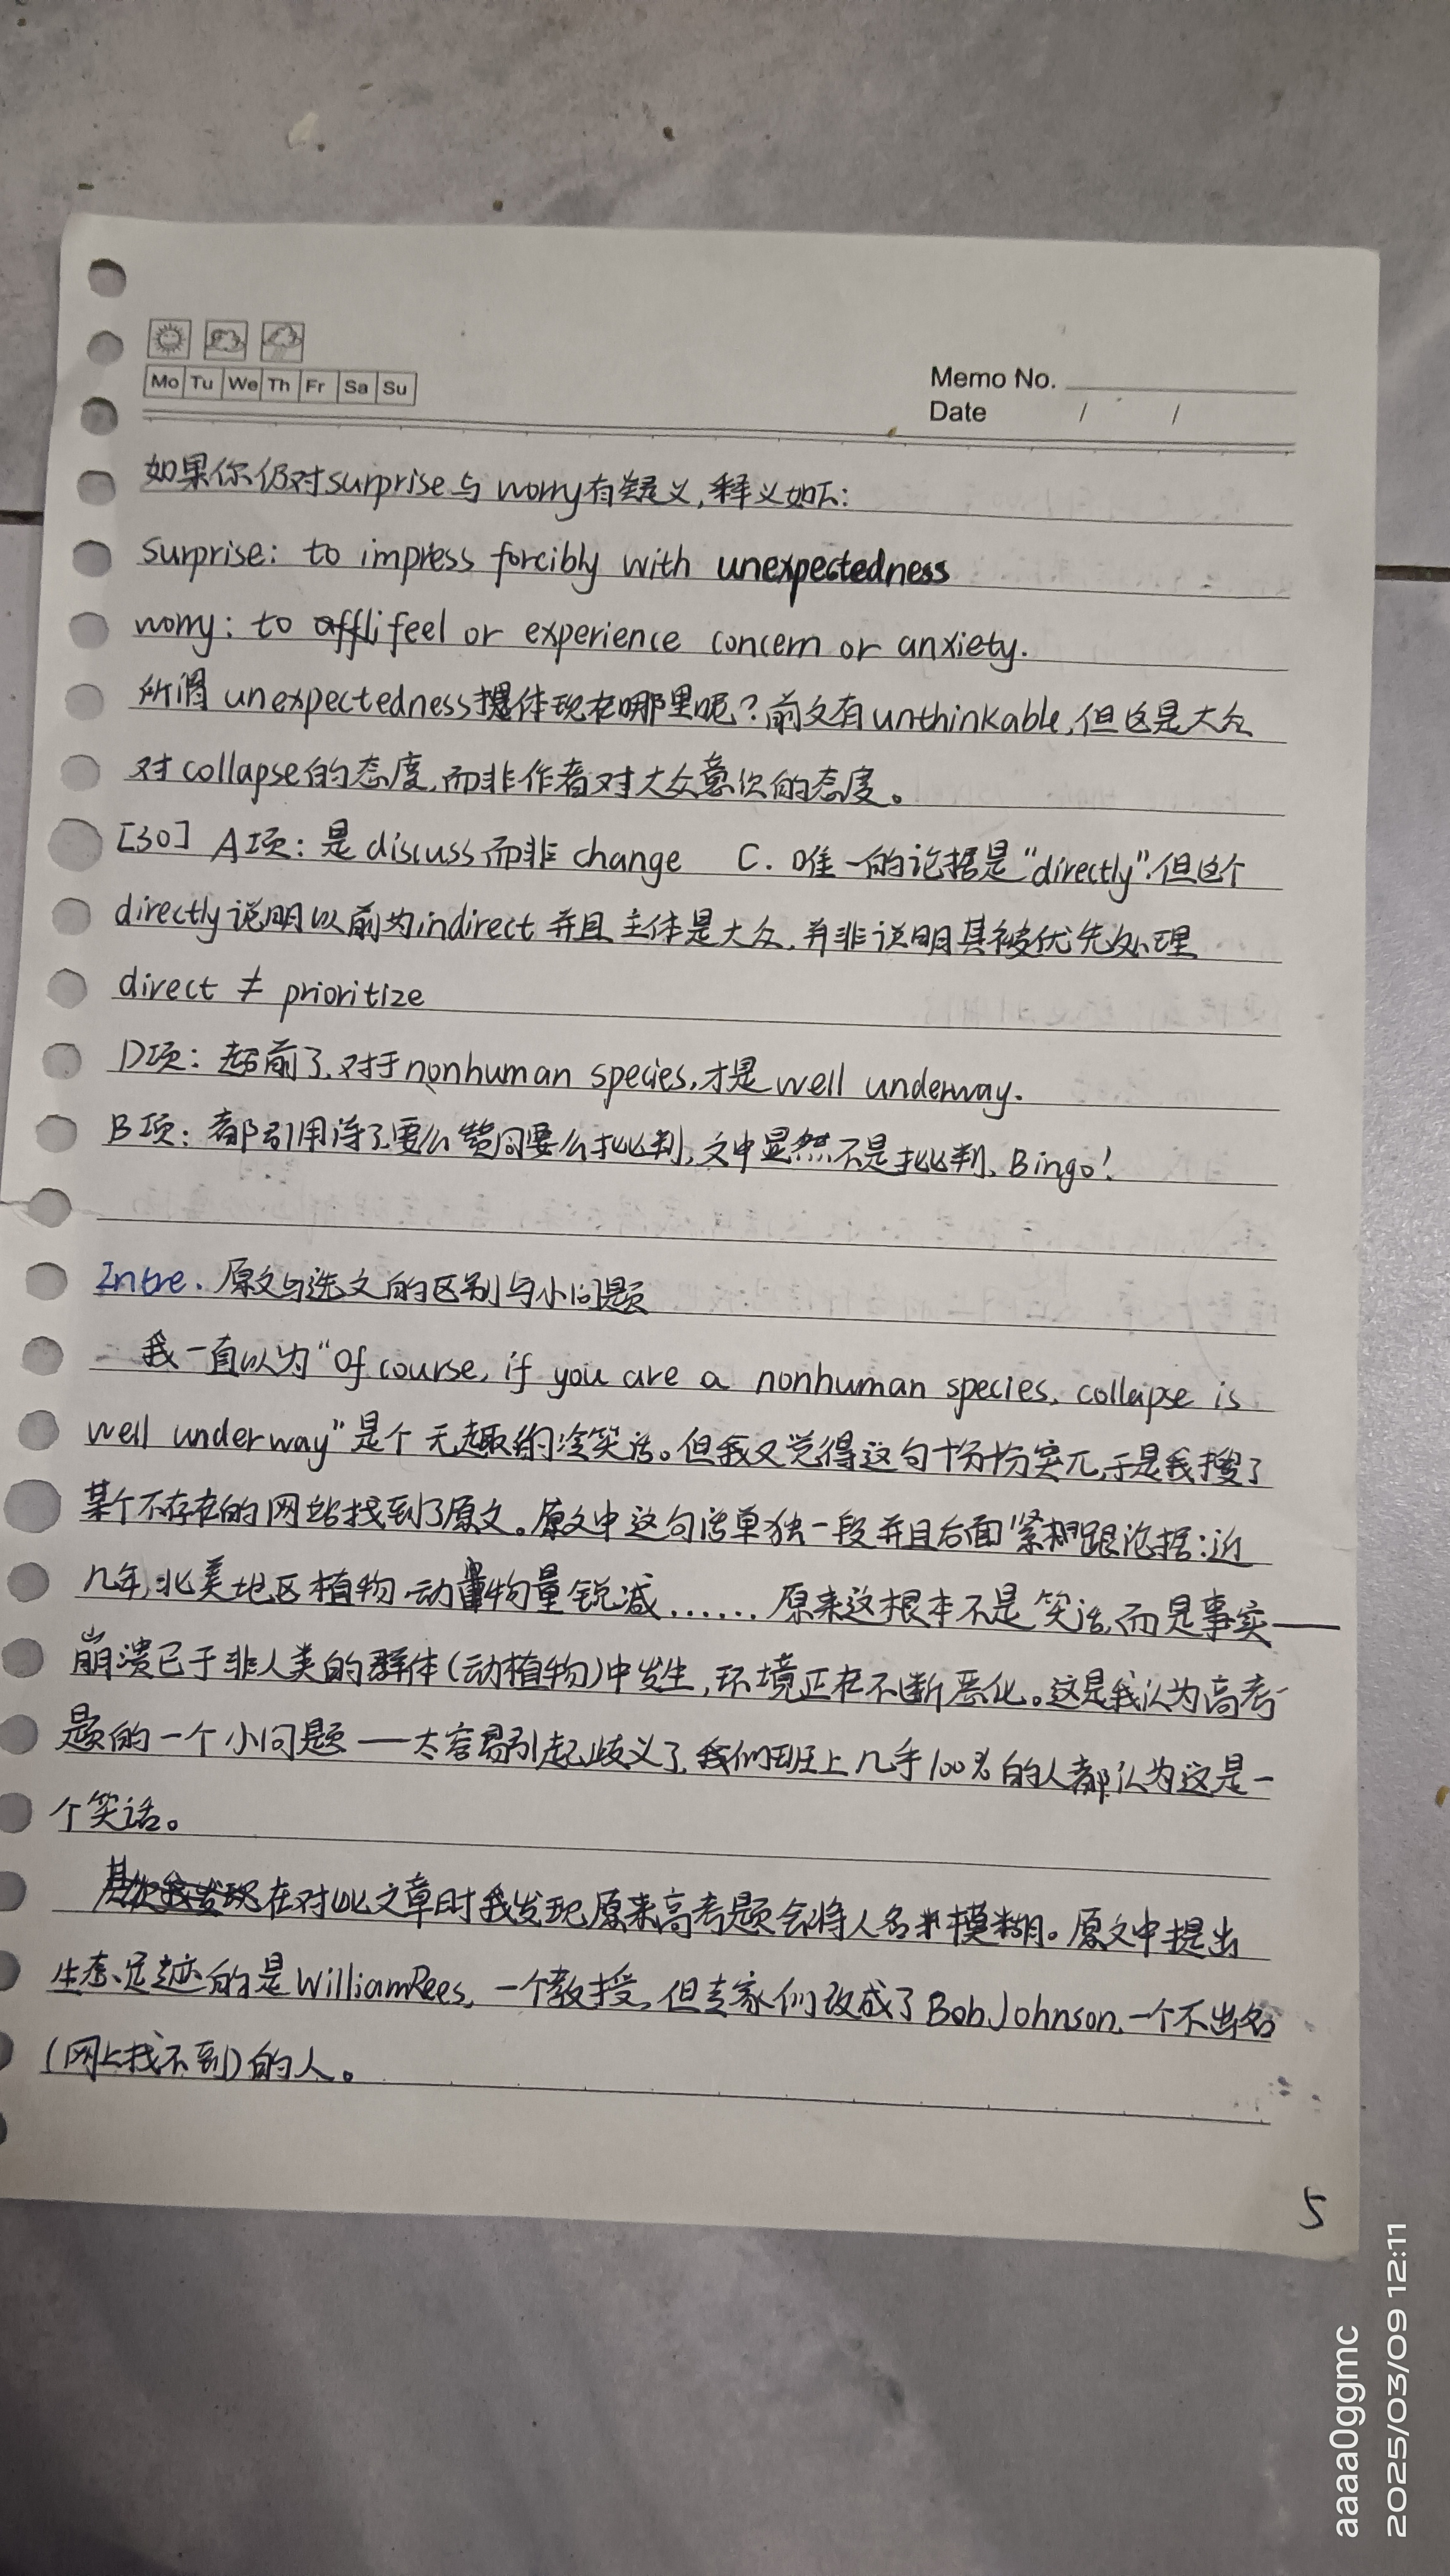 Mo Tu We Th Fr Sa Su
Memo No.
Date / /
如果你仍对surprise与worry有疑义,释义如下:
surprise: to impress forcibly with unexpectedness
worry: to feel or experience concern or anxiety.
所谓unexpectedness体现在哪里呢?前文有unthinkable,但这是大众
对collapse的态度,而非作者对大众意识的态度。
[30] A项:是discuss而非change C.唯一的论据是“directly”.但这个
directly说明以前为indirect并且主体是大众,并非说明其被优先处理
direct ≠ prioritize
D项:超前了,对于nonhuman species,才是well underway.
B项:都引用诗了,要么赞同要么批判,文中显然不是批判、Bingo!
Intre. 原文与选文的区别与小问题
我一直以为“Of course, if you are a nonhuman species, collapse is
well underway”是个无趣的冷笑话。但我又觉得这句十份十份突兀,于是我搜了
某个不存在的网站找到了原文。原文中这句话单独一段并且后面紧跟论据:近
几年,北美地区植物.动物量锐减……原来这根本不是笑话,而是事实——
崩溃已于非人类的群体(动植物)中发生,环境正在不断恶化。这是我认为高考
题的一个小问题——太容易引起歧义了,我们班上几乎100%的人都认为这是一
个笑话。
在对此文章时我发现原来高考题会将人名模糊。原文中提出
生态足迹的是WilliamRees,一个教授,但专家们改成了BobJohnson,一个不出名
(网上找不到)的人。
5
aaaa0ggmc
2025/03/09 12:11